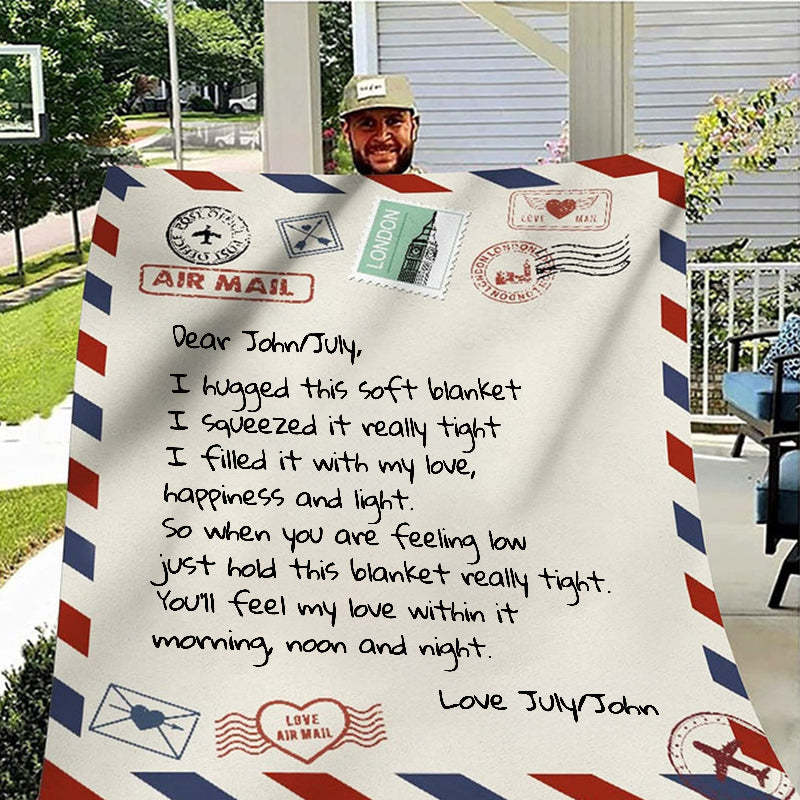 LOVE MAIL
POST OFFICE POST OFFICE
LONDON
LONDON LONDON LONDON
AIR MAIL
Dear John/July,
I hugged this soft blanket
I squeezed it really tight
I filled it with my love,
happiness and light.
So when you are feeling low
just hold this blanket really tight.
You'll feel my love within it
morning, noon and night.
Love July/John
LOVE
AIR MAIL